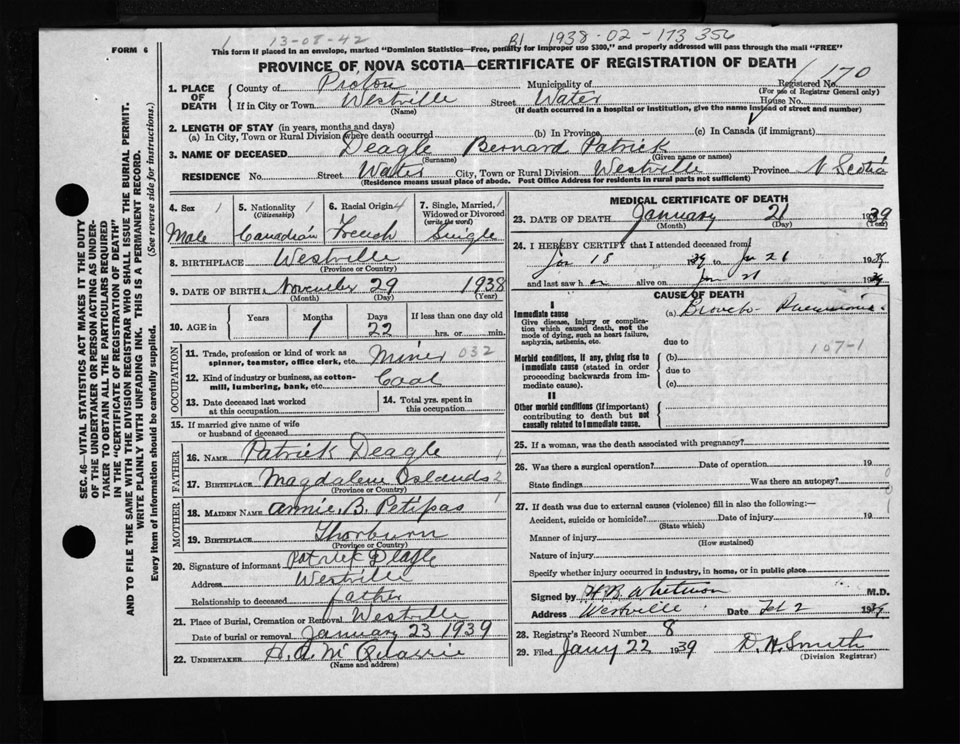 13-08-42 B1 1938-02-173 356
FORM 6
This form if placed in an envelope, marked "Dominion Statistics—Free, penalty for improper use $300," and properly addressed will pass through the mail "FREE"
PROVINCE OF NOVA SCOTIA—CERTIFICATE OF REGISTRATION OF DEATH
170
SEC. 46—VITAL STATISTICS ACT MAKES IT THE DUTY
OF THE UNDERTAKER OR PERSON ACTING AS UNDER-
TAKER TO OBTAIN ALL THE PARTICULARS REQUIRED
IN THE "CERTIFICATE OF REGISTRATION OF DEATH"
AND TO FILE THE SAME WITH THE DIVISION REGISTRAR WHO SHALL ISSUE THE BURIAL PERMIT.
WRITE PLAINLY WITH UNFADING INK. THIS IS A PERMANENT RECORD.
Every item of information should be carefully supplied. (See reverse side for instructions.)
1. PLACE OF DEATH
County of Pictou Municipality of
(For use of Registrar General only)
If in City or Town Westville Street Water House No.
(Name) (If death occurred in a hospital or institution, give the name instead of street and number)
2. LENGTH OF STAY (in years, months and days)
(a) In City, Town or Rural Division where death occurred (b) In Province (c) In Canada (if immigrant)
3. NAME OF DECEASED Deagle Bernard Patrick
(Surname) (Given name or names)
RESIDENCE No. Street Water City, Town or Rural Division Westville Province N Scotia
(Residence means usual place of abode. Post Office Address for residents in rural parts not sufficient)
4. Sex 1
Male
5. Nationality 1
(Citizenship)
Canadian
6. Racial Origin 4
French
7. Single, Married, 1
Widowed or Divorced
(write the word)
Single
8. BIRTHPLACE Westville
(Province or Country)
9. DATE OF BIRTH November 29 1938
(Month) (Day) (Year)
10. AGE in
Years Months Days If less than one day old
1 22 hrs. or min.
OCCUPATION
11. Trade, profession or kind of work as
spinner, teamster, office clerk, etc. Miner 032
12. Kind of industry or business, as cotton-
mill, lumbering, bank, etc. Coal
13. Date deceased last worked
at this occupation
14. Total yrs. spent in
this occupation
15. If married give name of wife
or husband of deceased
FATHER
16. NAME Patrick Deagle 1
17. BIRTHPLACE Magdalene Islands 2
(Province or Country)
MOTHER
18. MAIDEN NAME Annie. B. Petipas 1
19. BIRTHPLACE Thorburn
(Province or Country)
20. Signature of informant Patrick Deagle
Address Westville
Relationship to deceased father
21. Place of Burial, Cremation or Removal Westville
Date of burial or removal January 23 1939
22. UNDERTAKER H. A. McQuarrie
(Name and address)
MEDICAL CERTIFICATE OF DEATH
23. DATE OF DEATH January 21 1939
(Month) (Day) (Year)
24. I HEREBY CERTIFY that I attended deceased from
Jan 18 1939 to Jan 21 1939
and last saw h alive on Jan 21 1939
CAUSE OF DEATH
I
Immediate cause
Give disease, injury or complica-
tion which caused death, not the
mode of dying, such as heart failure,
asphyxia, asthenia, etc.
(a) Broncho-Pneumonia
due to
107-1
Morbid conditions, if any, giving rise to
immediate cause (stated in order
proceeding backwards from im-
mediate cause).
(b)
due to
(c)
II
Other morbid conditions (if important)
contributing to death but not
causally related to immediate cause.
25. If a woman, was the death associated with pregnancy?
26. Was there a surgical operation? Date of operation 19 0
State findings Was there an autopsy? 0
27. If death was due to external causes (violence) fill in also the following:—
Accident, suicide or homicide? Date of injury 19
(State which)
Manner of injury
(How sustained)
Nature of injury
Specify whether injury occurred in industry, in home, or in public place
Signed by H B Whitman M.D.
Address Westville Date Feb 2 1939
28. Registrar's Record Number 8
29. Filed Jany 22 1939 D. H. Smith
(Division Registrar)